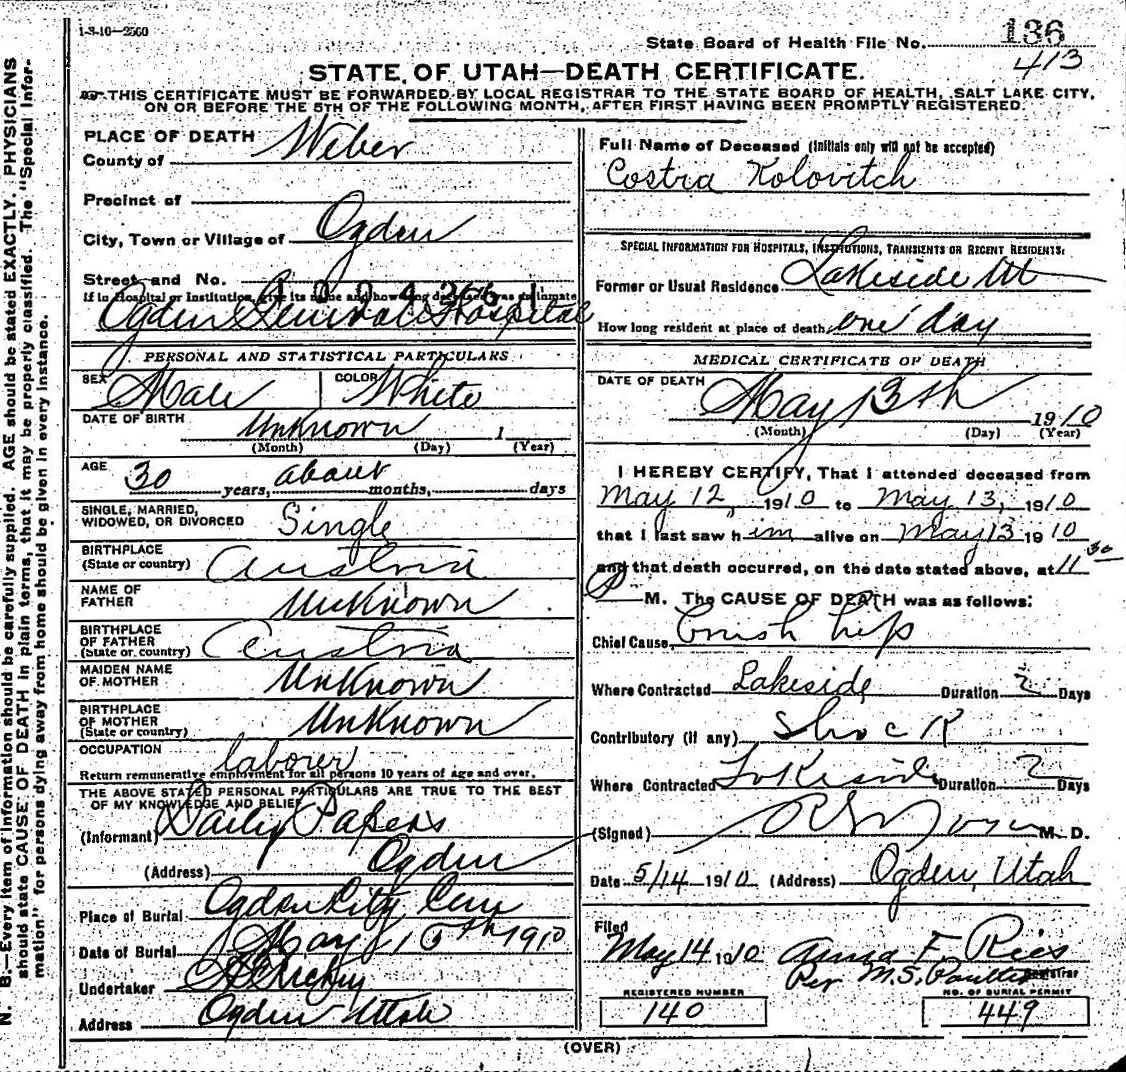 1-3-10—2560
State Board of Health File No. 136
413
STATE OF UTAH—DEATH CERTIFICATE.
THIS CERTIFICATE MUST BE FORWARDED BY LOCAL REGISTRAR TO THE STATE BOARD OF HEALTH, SALT LAKE CITY,
ON OR BEFORE THE 5TH OF THE FOLLOWING MONTH, AFTER FIRST HAVING BEEN PROMPTLY REGISTERED.
PLACE OF DEATH
County of Weber
Precinct of
City, Town or Village of Ogden
Street and No.
If in Hospital or Institution, give its name and how long deceased was an inmate
Ogden General Hospital
PERSONAL AND STATISTICAL PARTICULARS
SEX Male COLOR White
DATE OF BIRTH Unknown 1
(Month) (Day) (Year)
AGE 30 years, about months, days
SINGLE, MARRIED,
WIDOWED, OR DIVORCED Single
BIRTHPLACE
(State or country) Austria
NAME OF
FATHER Unknown
BIRTHPLACE
OF FATHER
(State or country) Austria
MAIDEN NAME
OF MOTHER Unknown
BIRTHPLACE
OF MOTHER
(State or country) Unknown
OCCUPATION laborer
Return remunerative employment for all persons 10 years of age and over.
THE ABOVE STATED PERSONAL PARTICULARS ARE TRUE TO THE BEST
OF MY KNOWLEDGE AND BELIEF
(Informant) Daily Papers
(Address) Ogden
Place of Burial Ogden City Cem
Date of Burial May 15th 1910
Undertaker
Address Ogden Utah
Full Name of Deceased (Initials only will not be accepted)
Costra Kolovitch
SPECIAL INFORMATION FOR HOSPITALS, INSTITUTIONS, TRANSIENTS OR RECENT RESIDENTS:
Former or Usual Residence Lakeside Ut
How long resident at place of death, one day
MEDICAL CERTIFICATE OF DEATH
DATE OF DEATH May 13th 1910
(Month) (Day) (Year)
I HEREBY CERTIFY, That I attended deceased from
May 12, 1910 to May 13, 1910
that I last saw him alive on May 13 1910
and that death occurred, on the date stated above, at 11 30
P M. The CAUSE OF DEATH was as follows:
Chief Cause, Crush hip
Where Contracted Lakeside Duration 2 Days
Contributory (if any) Shock
Where Contracted Lakeside Duration 2 Days
(Signed) M. D.
Date 5/14 1910 (Address) Ogden, Utah
Filed
May 14 1910 Anna F Ries
Per M.S. Registrar
REGISTERED NUMBER
140
NO. OF BURIAL PERMIT
449
(OVER)
N. B.—Every item of information should be carefully supplied. AGE should be stated EXACTLY. PHYSICIANS
should state CAUSE OF DEATH in plain terms, that it may be properly classified. The "Special Infor-
mation" for persons dying away from home should be given in every instance.